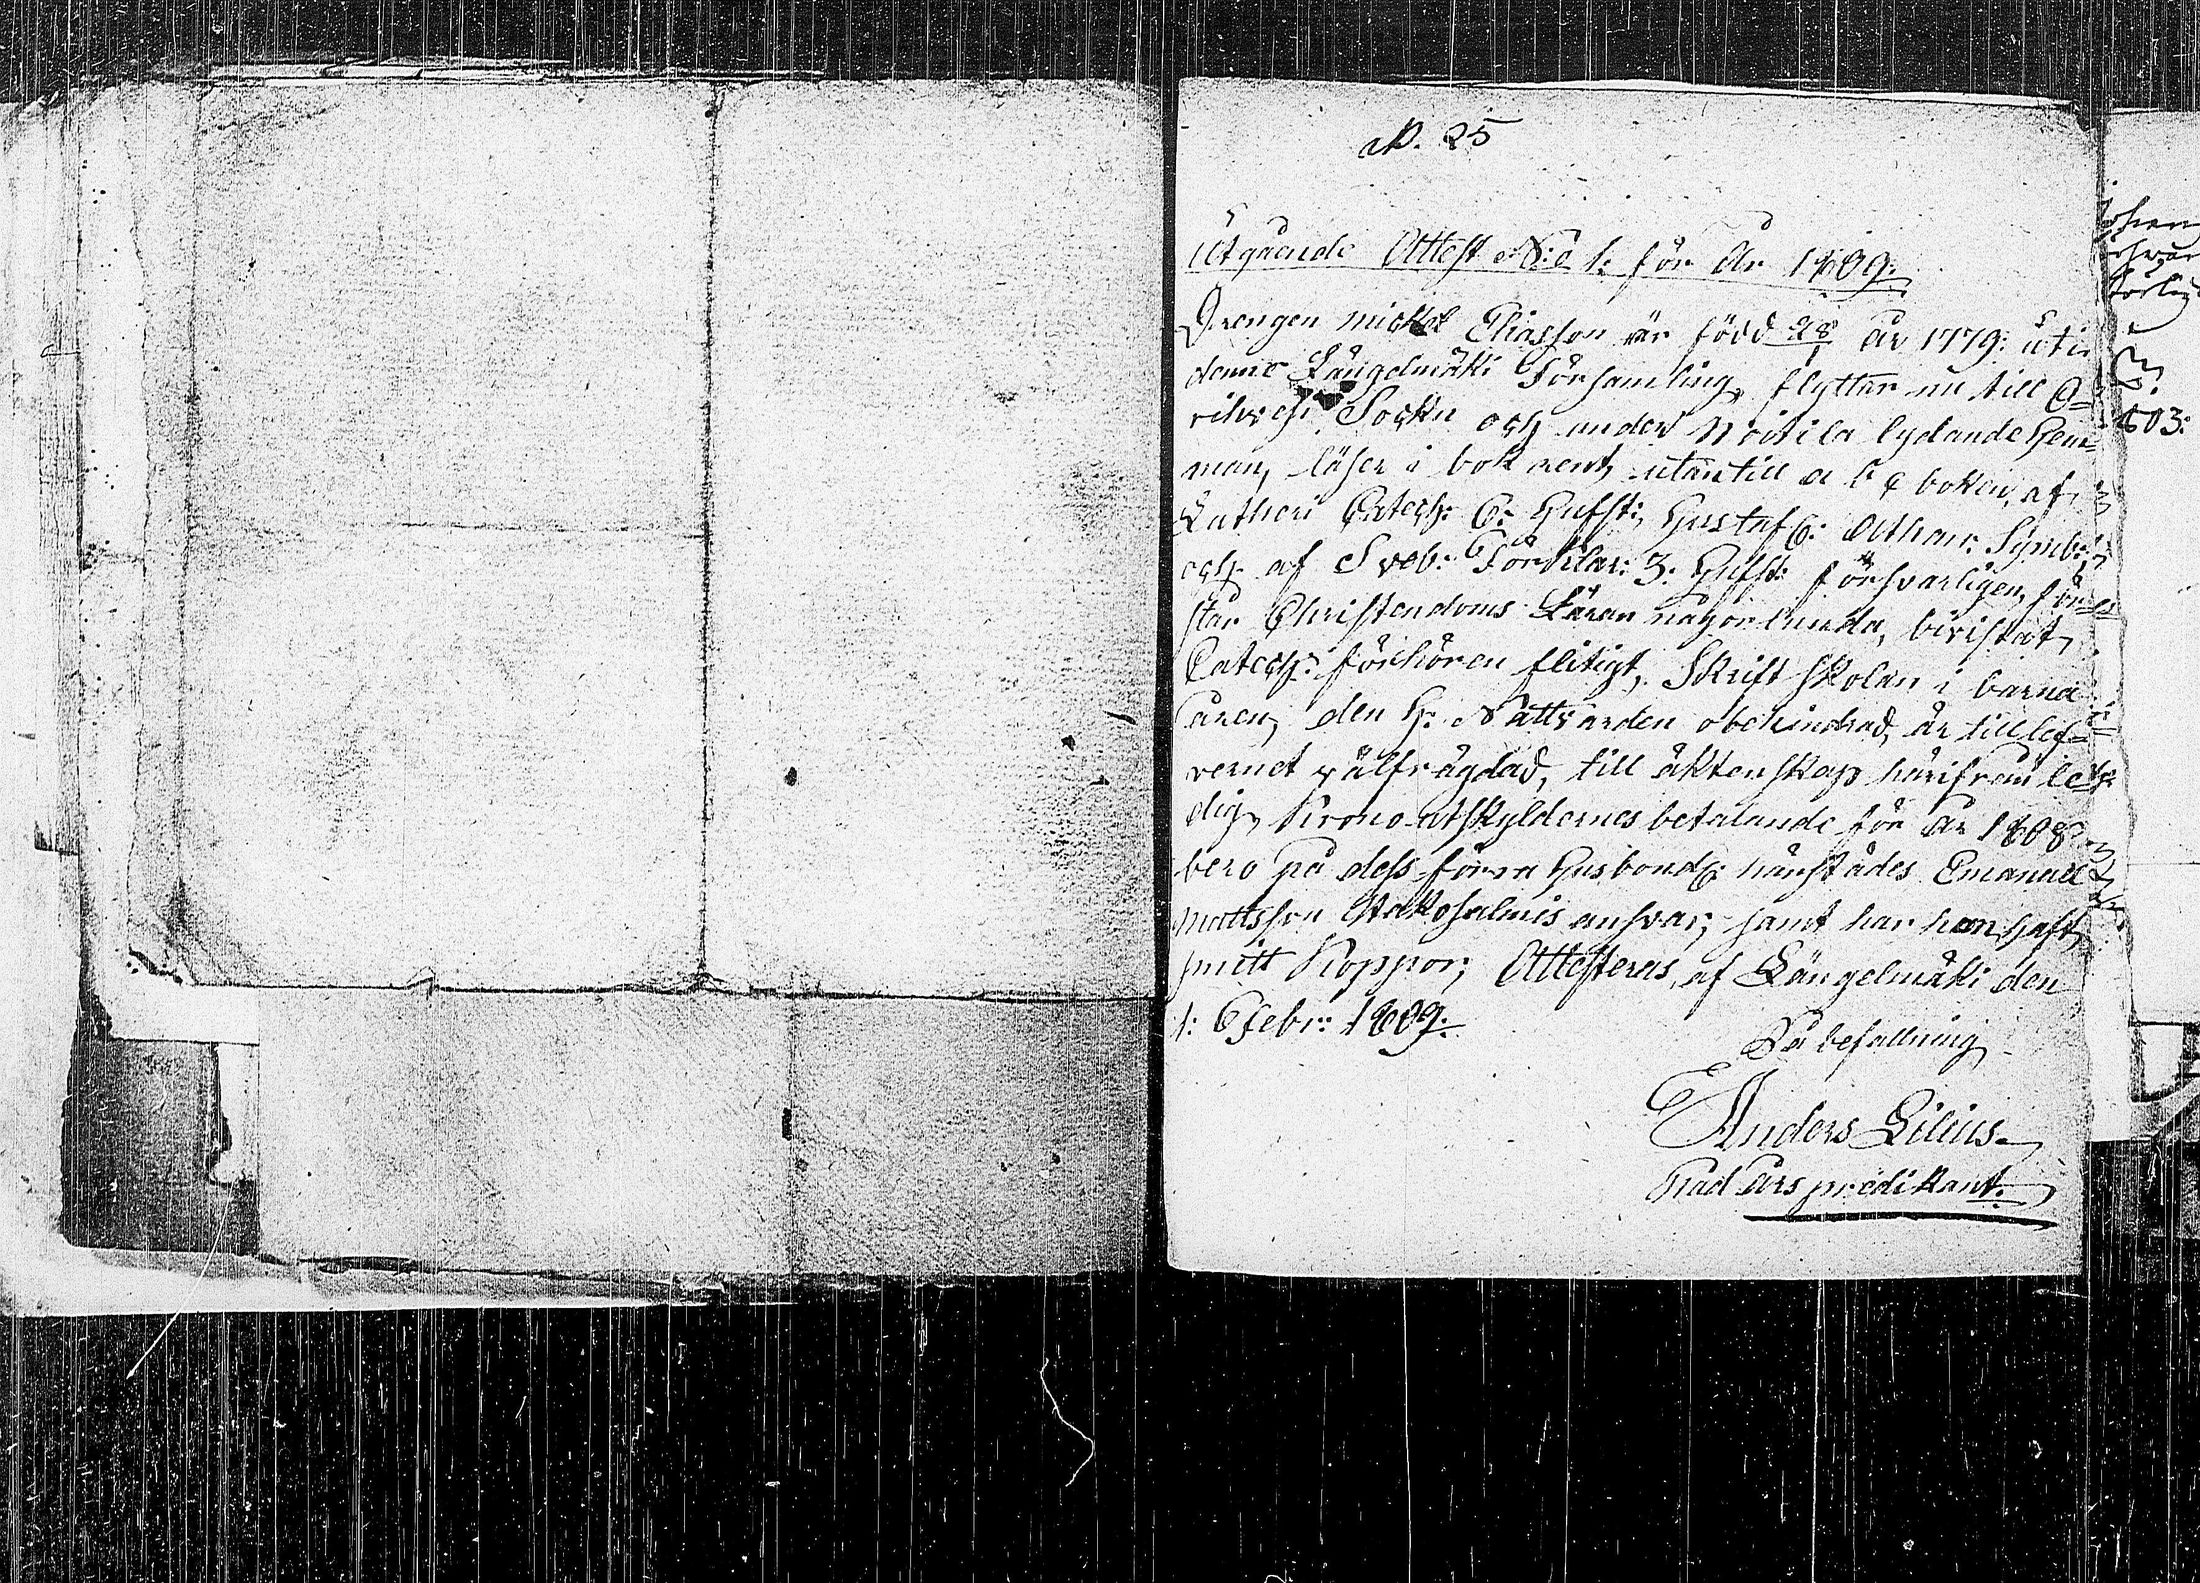 N. 25
Utgående Attest N:o 1: för År 1809.
Drengen Mickel Eliasson är född 28/9 år 1779: uti
denne Längelmäki Församling, flyttar nu till O=
rihvesi Sockn och under Noitila lydande Hem=
man, läser i bok rent, utantill a b c boken, af
Lutheri Catech: C: Hufst:, Hustafl: Athan: Symb:
och af Sveb: Förklar: 3. Hufst: försvarligen, för=
står Christendoms Läran någorlunda, bivistat
Catech: förhören flitigt, Skriftskolan i barna
åren, den H. Nattvarden obehindrad, är till lef=
vernet välfrägdad, till äktenskap härifrån le=
dig, Krono utskyldernes betalande för År 1808.
bero på dess förra Husbonde härstädes Emanuel
Mattsson Hakosalmis ansvar; samt har han haft
smitt Koppor; Attesteras, af Längelmäki den
1: Febr: 1809.
På befallning
Anders Lilius.
Nåd års predikant.
603: